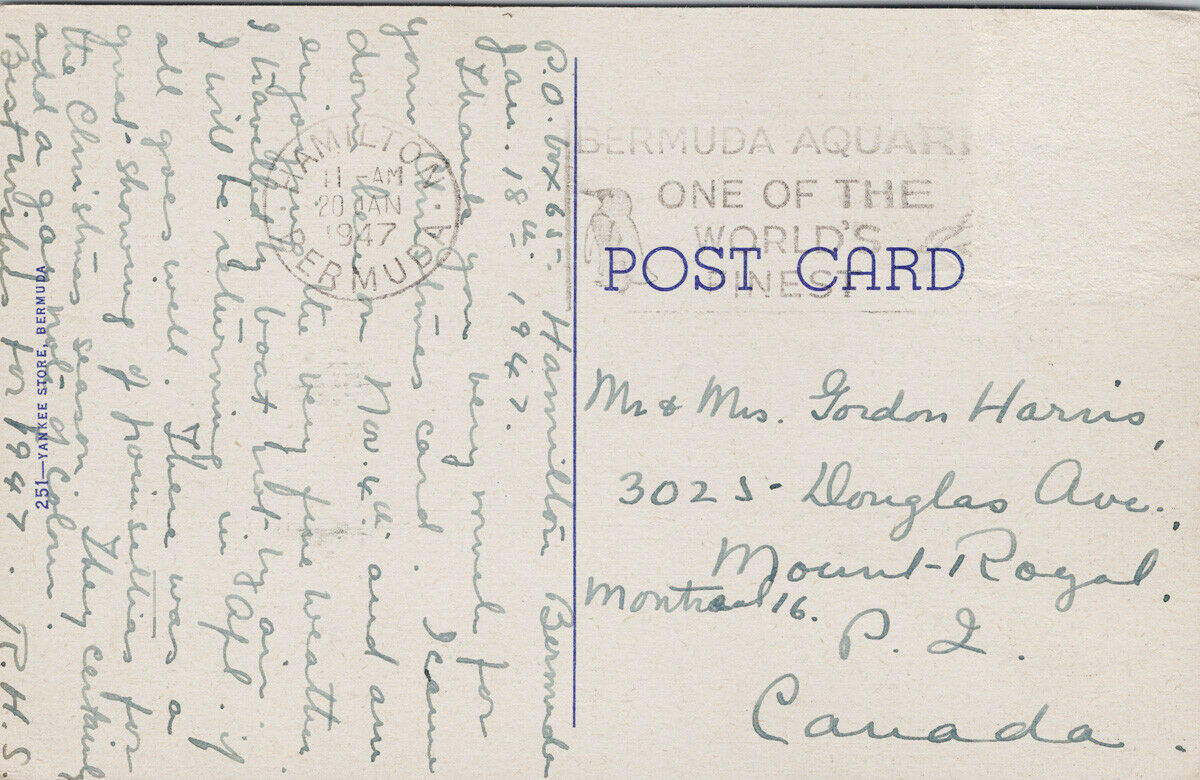 P.O. box 65. Hamilton Bermuda
Jan. 18th. 1947.
Thank you very much for
your Christmas card. I came
down here on Nov. 4th. and am
enjoying the very fine weather
I travelled by boat not by air.
I will be returning in Apl. if
all goes well. There was a
great showing of poinsettias for
the Christmas season. They certainly
add a gay note of colour.
Best wishes for 1947. R.H.S
251—YANKEE STORE, BERMUDA
HAMILTON
11 - AM
20 JAN
1947
BERMUDA
BERMUDA AQUARI
ONE OF THE
WORLD'S
FINEST
POST CARD
Mr & Mrs. Gordon Harris,
3025- Douglas Ave.,
Mount-Royal,
Montreal 16.
P. Q.
Canada.